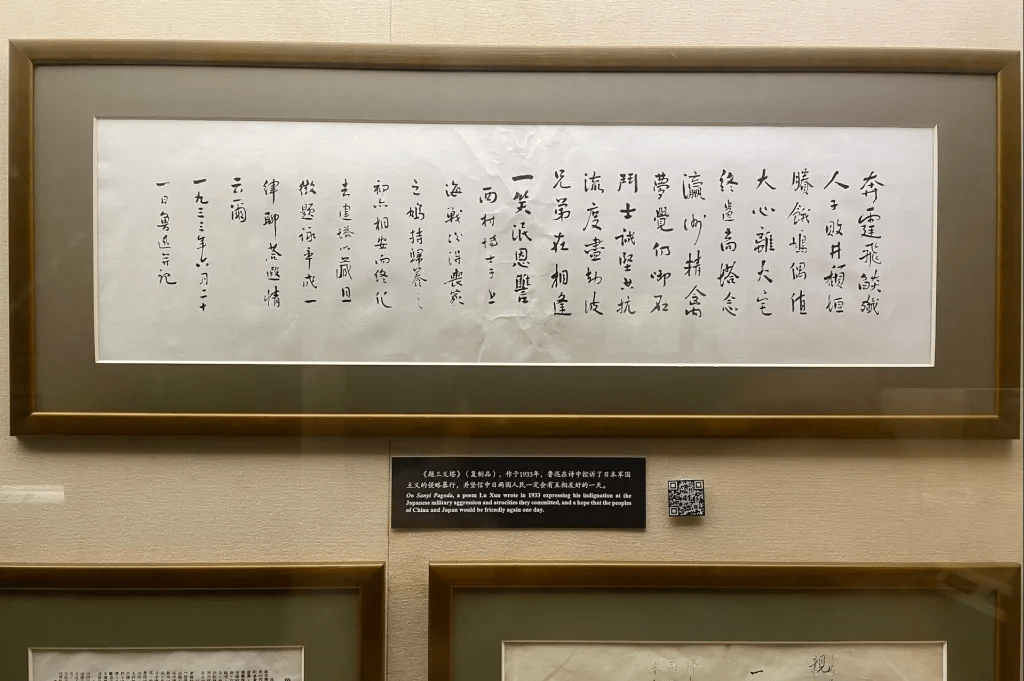 奔霆飛熖殲
人子敗井頽垣
賸餓鳩偶值
大心離火宅
終遺高塔念
瀛洲精禽
夢覺仍啣石
鬥士誠堅共抗
流度盡劫波
兄弟在相逢
一笑泯恩讐
西村博士于上
海戰後得喪家
之鳩持歸養之
初亦相安而終化
去建塔以藏且
徵題詠率成一
律聊荅遐情
云爾
一九三三年六月二十
一日魯迅并記
《题三义塔》（复制品），作于1933年，鲁迅在诗中控诉了日本军国
主义的侵略暴行，并坚信中日两国人民一定会有互相友好的一天。
On Sanyi Pagoda, a poem Lu Xun wrote in 1933 expressing his indignation at the
Japanese military aggression and atrocities they committed, and a hope that the peoples
of China and Japan would be friendly again one day.
親
一